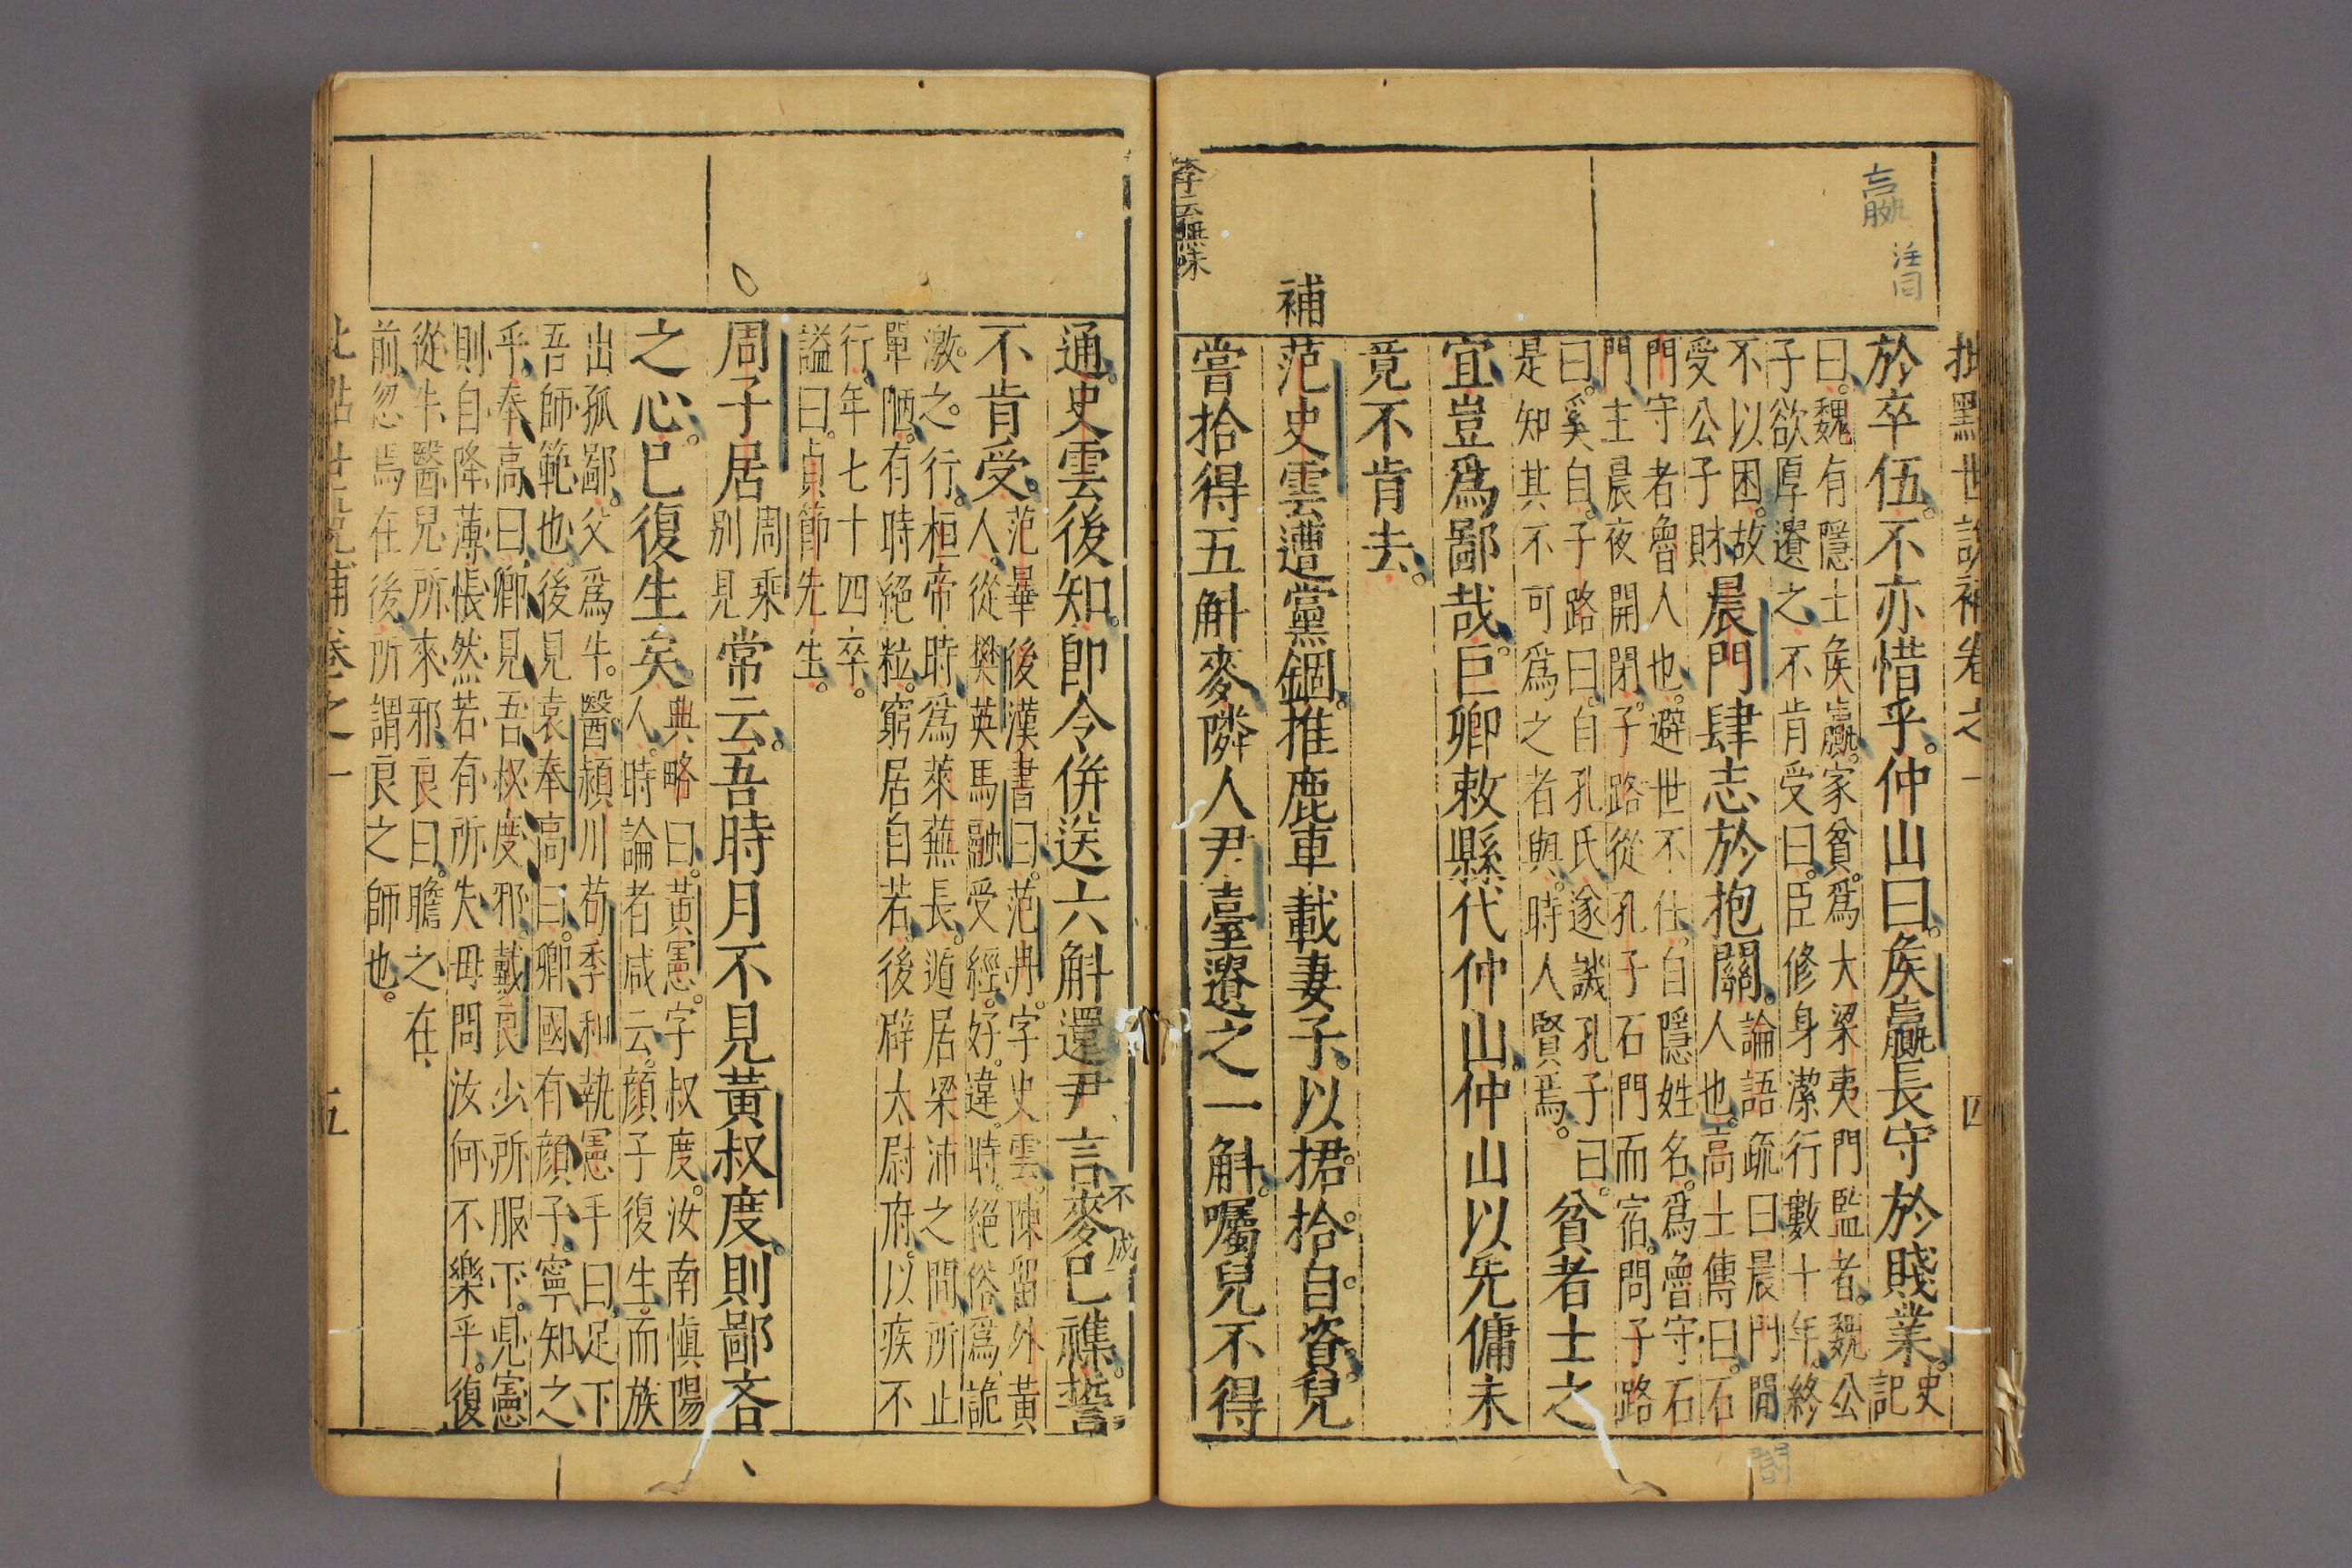 批點世說補卷之一 四
於卒伍不亦惜乎。仲山曰。矦嬴長守於賤業。史記
曰。魏有隱士矦嬴。家貧。爲大梁夷門監者。魏公
子欲厚遺之。不肯受曰。臣修身潔行數十年。終
不以困故
受公子財
晨門肆志於抱關。
論語疏曰晨門閽
人也。高士傳曰。石
門守者魯人也。避世不仕。自隱姓名。爲魯守石
門主晨夜開閉。子路從孔子石門而宿。問子路
曰。奚自。子路曰。自孔氏遂譏孔子曰
是知其不可爲之者與。時人賢焉。
貧者士之
宜豈爲鄙哉。巨卿敕縣代仲山。仲山以先傭未
竟不肯去。
補
范史雲遭黨錮。推鹿車載妻子。以捃拾自資。兒
嘗拾得五斛麥。隣人尹臺遺之一斛。囑兒不得
李云無味
嬴
注同
閽
通。史雲後知。卽令併送六斛還尹言麥已襍。誓
不成
不肯受。
范曄後漢書曰。范冉。字史雲。陳留外黃
人。從樊英馬融受經。好違時。絕俗爲詭
激之行。桓帝時爲萊蕪長。遁居梁沛之間。所止
單陋。有時絕粒。窮居自若。後辟太尉府。以疾不
行。年七十四卒。
謚曰。貞節先生。
周子居
周乘
別見
常云。吾時月不見黃叔度。則鄙吝
之心。已復生矣。
典略曰。黃憲。字叔度。汝南愼陽
人。時論者咸云。顔子復生。而族
出孤鄙。父爲牛醫。潁川荀季和執憲手曰。足下
吾師範也。後見袁奉高曰。卿國有顔子。寧知之
乎。奉高曰。卿見吾叔度邪。戴良少所服下。見憲
則自降薄。悵然若有所失。母問汝何不樂乎。復
從牛醫兒所來邪。良曰。瞻之在
前。忽焉在後。所謂良之師也。
批點世說補卷之一 五